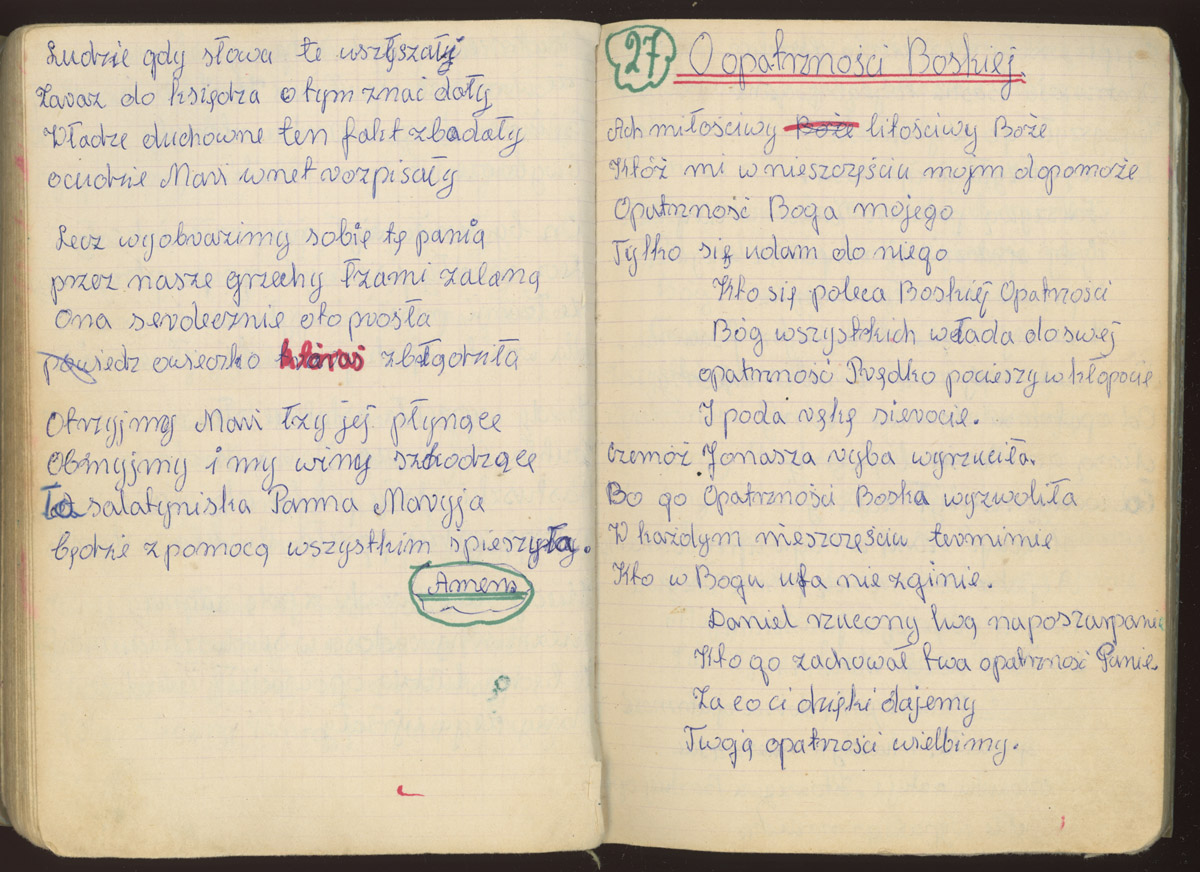 Ludzie gdy słowa te uszłyszały
Zaraz do księdza o tym znać dały
Władze duchowne ten fakt zbadały
ocudzie Mari wnet rozpisały
Lecz wyobrazimy sobię tę panią
przez nasze grzechy łzami zalaną
Ona serdecznie oto prosła
powiedz owieczko któraś zbłądziła
Otrzyjmy Mari łzy jej płynące
Obmyjmy i my winy szkodzące
Ta salatyniska Panna Maryja
będzie z pomocą wszystkim spieszyła.
Amen
27 O opatrzności Boskiej.
Ach miłościwy Boże litościwy Boże
Któż mi w nieszczęściu mojm dopomoże
Opatrzność Boga mojego
Tylko się udam do niego
Kto się poleca Boskiej Opatrości
Bóg wszystkich władа do swej
opatrzność Prędko pocieszy w kłopocie
I poda rękę sierocie.
Czemóż Jonasza ryba wyrzuciła.
Bo go Opatrzności Boska wyzwoliła
W każdym nieszczęściu terminie
Kto w Bogu ufa nie zginie.
Daniel rzucony lwą naposzarpanie
Kto go zachował twa opatrzność Panie.
Za co ci dzięki dajemy
Twoją opatrzości wielbimy.